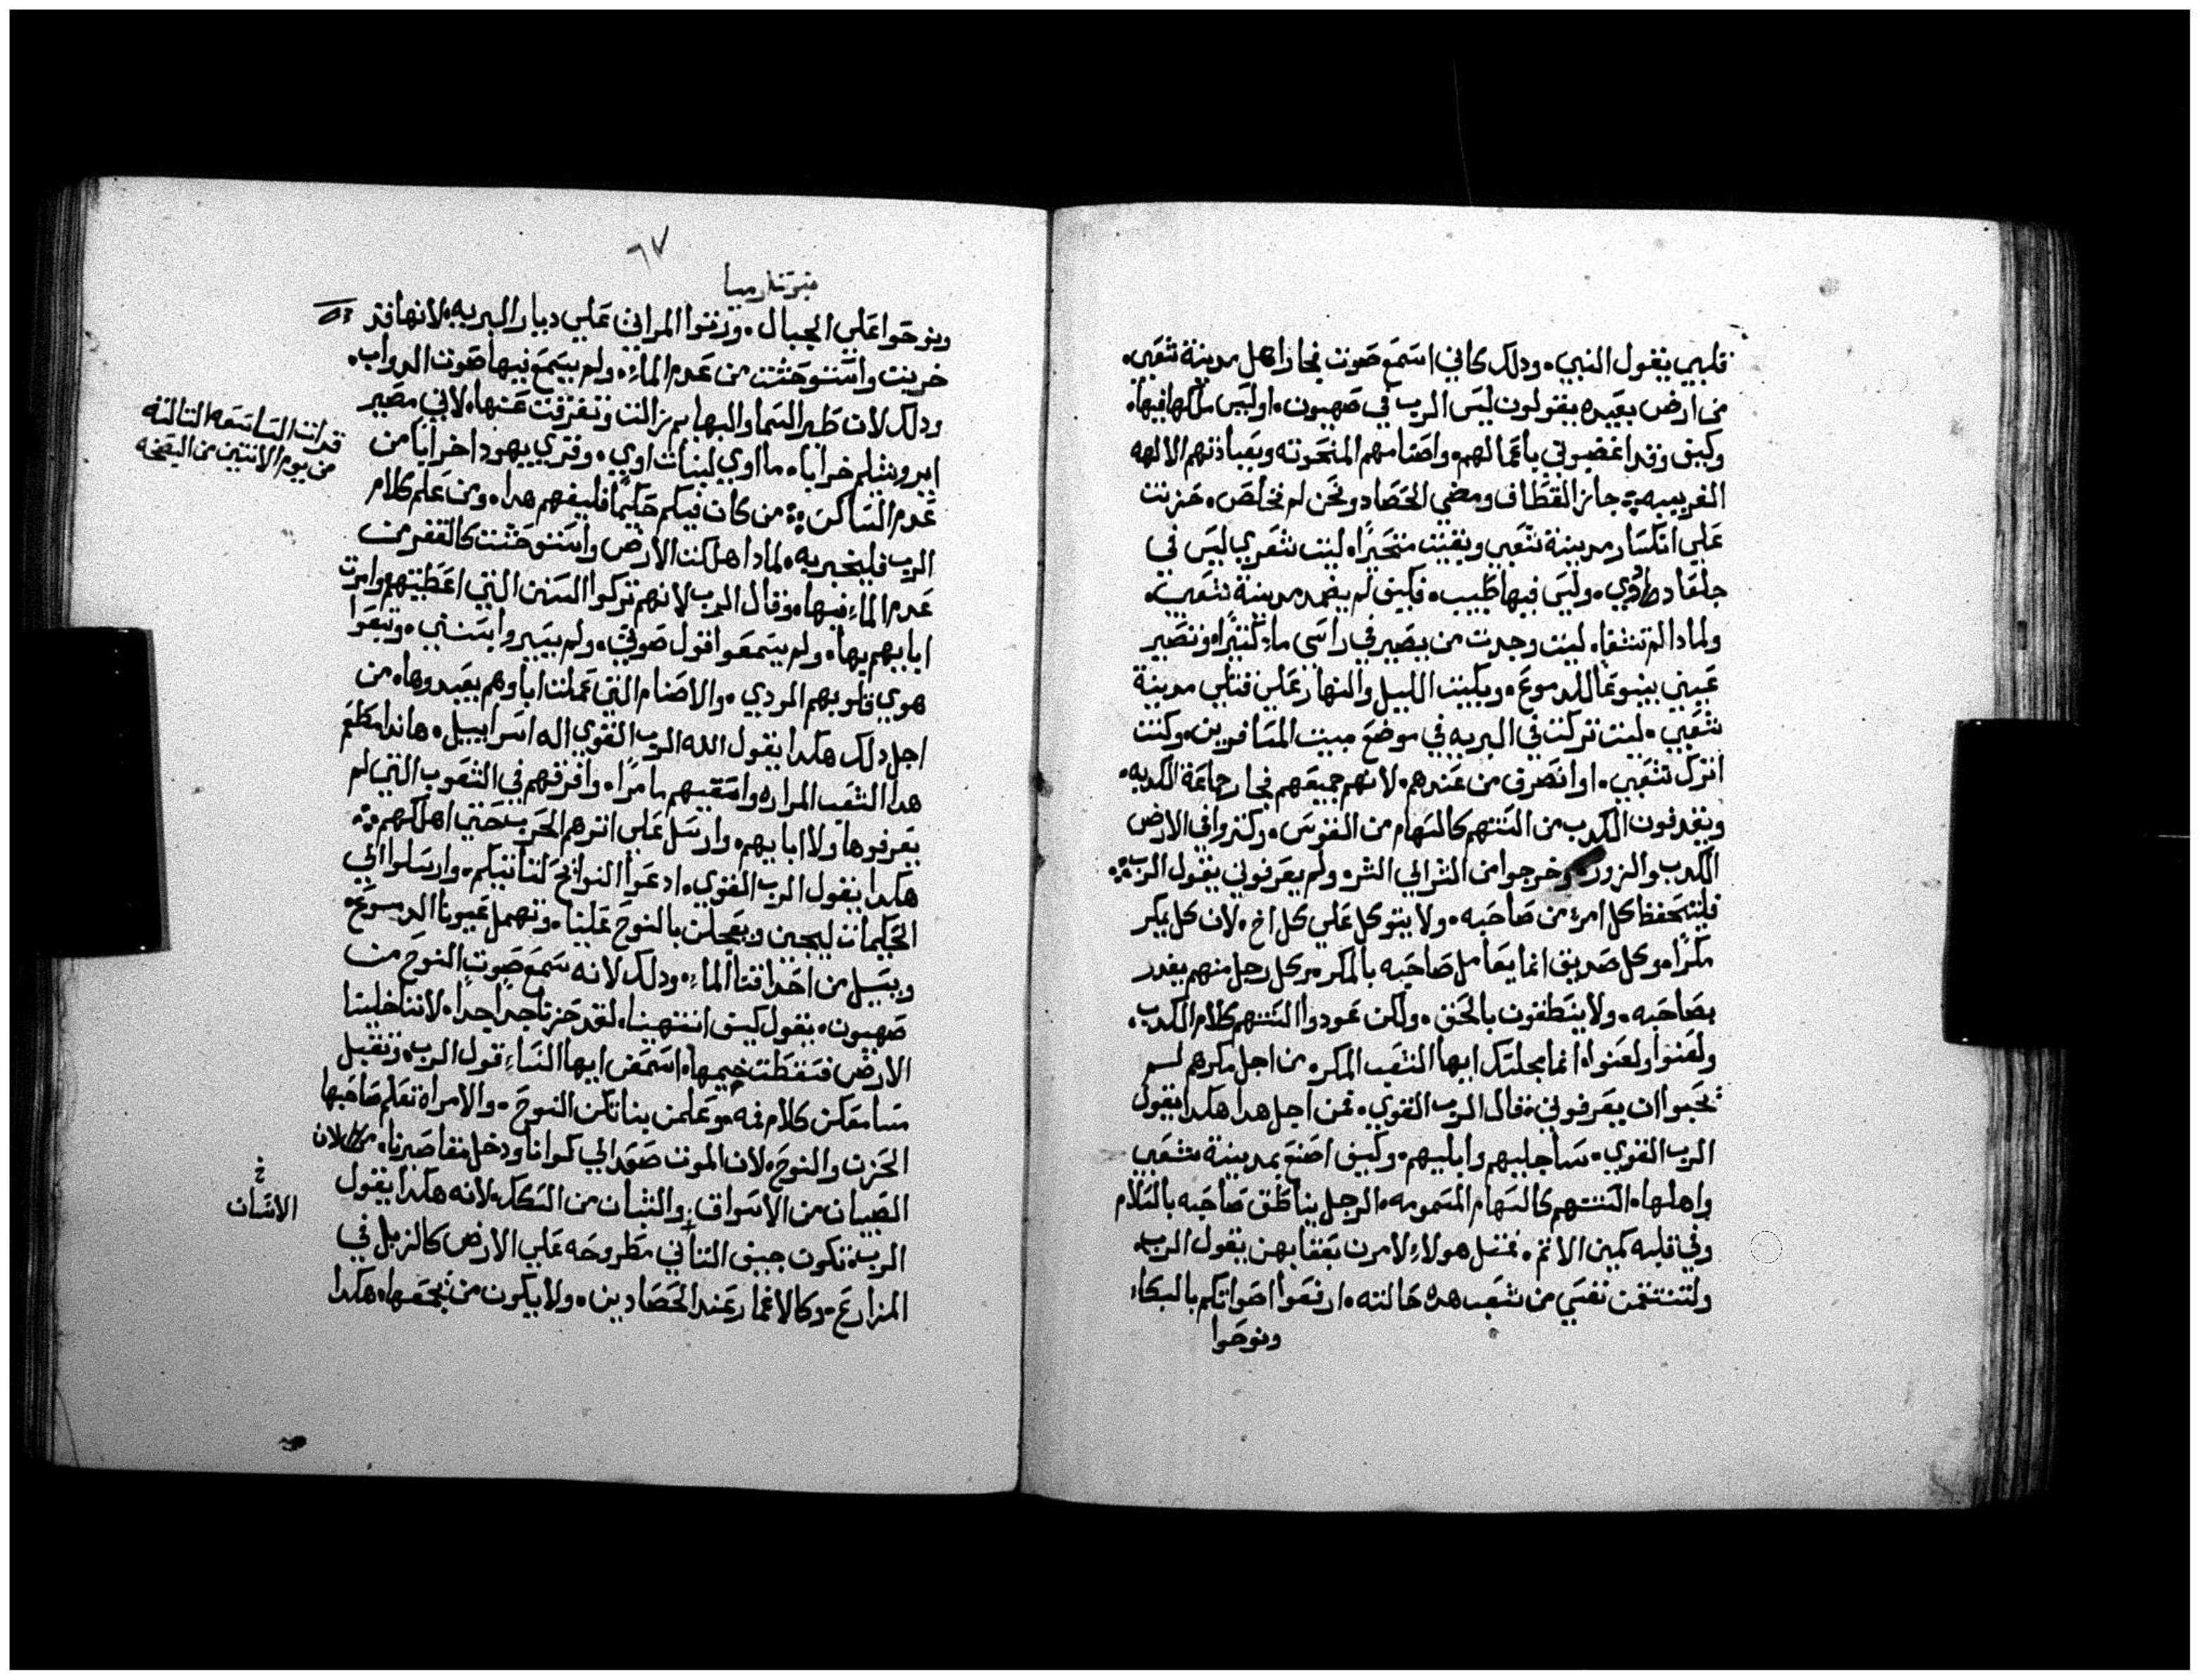 قلبي يقول النبي. ودلك كاني اسمع صوت نجار اهل مدينة شعبي.
من ارض بعيده يقولون ليس الرب في صهيون. اوليس ملكها فيها.
وكيف وقد اغضبوني باعمالهم. واصنامهم المنحوته وبعبادتهم الالهه
الغريبيه. جاز القطاف ومضي الحصاد ونحن لم نخلص. حزنت
علي انكسار مدينة شعبي وبقيت متحيرًا. ليت شعري ليس في
جلعاد دوي. وليس فيها طبيب. فكيف لم يضمد مدينة شعبي.
ولمادا لم تشفا. ليت وجدت من يصير في راسي ماء كثيرًا. وتصير
عيني ينبوعًا للدموع. وبكيت الليل والنهار علي قتلي مدينة
شعبي. ليت تركت في البريه في موضع مبيت المسافرين. وكنت
اترك شعبي. او انصرف من عندهم. لانهم جميعهم فجار جماعة الكدبه.
ويقدفون الكدب من السنتهم كالسهام من القوس. وكتروا في الارض
الكدب والزور. وخرجوا من الشر الي الشر. ولم يعرفوني يقول الرب
فليتحفظ كل امرء من صاحبه. ولا يتوكل علي كل اخ. لان كل يمكر
مكرًا. وكل صديق انما يعامل صاحبه بالمكر. وكل رجل منهم يغدر
بصاحبه. ولا ينطقون بالحق. ولكن عودوا السنتهم كلام الكدب.
ولعنوا ولعنوا. انما مجلسك ايها الشعب المكر. من اجل مكرهم لم
يحبوا ان يعرفوني. قال الرب القوي. فمن اجل هدا هكدا يقول
الرب القوي. ساجليهم وابليهم. وكيف اصنع بمدينة شعبي
واهلها. السنتهم كالسهام المسمومه. الرجل يناطق صاحبه بالسلام
وفي قلبه كمين الاتم. فمتل هولاء لامرت بعقابهن يقول الرب.
ولتنتقمن نفسي من شعب هده حالته. ارفعوا اصواتكم بالبكاء
ونوحوا
٦٧
نبوة ارميا
ونوحوا علي الجبال. ورتوا المراتي علي ديار البريه. لانها قد
خربت واستوحشت من عدم الماء. ولم يسمع فيها صوت الدواب.
ودلك لان طير السما والبهايم زالت وتفرقت عنها. لاني مصير
ايروشلم خرابًا. ماوي لبنات اوي. وقري يهودا خرابًا من
عدم الساكن. من كان فيكم حكيمًا فليفهم هدا. ومن علم كلام
الرب فليخبر به. لمادا هلكت الارض واستوحشت كالقفر من
عدم الماء فيها. وقال الرب لانهم تركوا السنن التي اعطيتهم وامرت
ابايهم بها. ولم يسمعوا قول صوتي. ولم يسيروا بسنني. وتبعوا
هوي قلوبهم المردي. والاصنام التي عملت اباوهم يعبدوها. من
اجل دلك هكدا يقول الله الرب القوي اله اسراييل. هاندا مطعم
هدا الشعب المراره واسقيهم مامرًا. وافرقهم في الشعوب التي لم
يعرفوها ولا ابايهم. وارسل علي اترهم الحرب حتي اهلكهم.
هكدا يقول الرب القوي. ادعوا النوايح لتاتيكم. وارسلوا الي
الحكيمات ليجين ويعجلن بالنوح علينا. وتهمل عيوننا الدموع.
ويسيل من احداقنا الماء. ودلك لانه سمع صوت النوح من
صهيون. يقول كيف انتهبنا. لقد حزنا جدا جدا. لاننا خلينا
الارض فسقطت خيمها. اسمعن ايها النساء قول الرب. وتقبل
مسامعكن كلام فمه. وعلمن بناتكن النوح. والامراه تعلم صاحبها
الحزن والنوح. لان الموت صعد الي كوانا ودخل مقاصيرنا.
الصبيان من الاسواق. والشبان من السكك. لانه هكدا يقول
الرب. تكون جيف الناس مطروحه علي الارض كالزبل في
المزارع. وكالاغمار عند الحصادين. ولا يكون من يجمعها. هكدا
قدات الساعه التاسعه التالته
من يوم الاتنين من البصخه
خ
الانسان